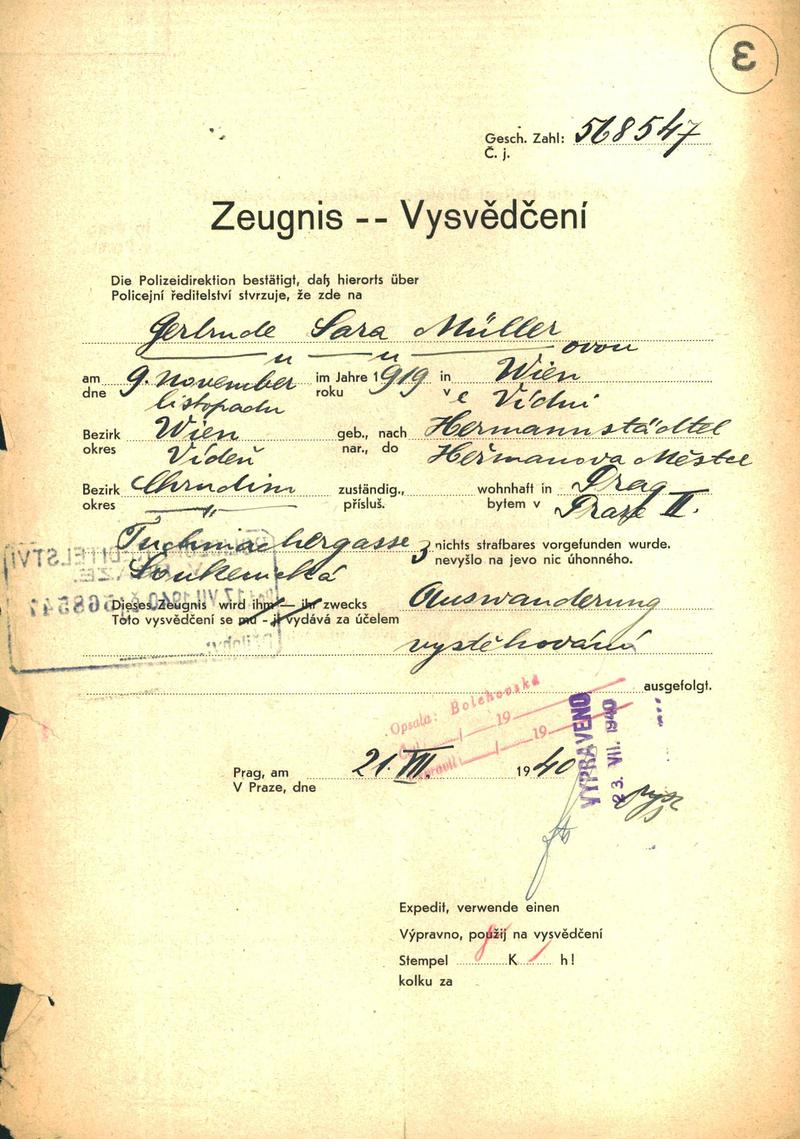 3
Gesch. Zahl: 568547
Č. j.
Zeugnis -- Vysvědčení
Die Polizeidirektion bestätigt, daß hierorts über
Policejní ředitelství stvrzuje, že zde na
Gertrude Sara Müller
ovou
am 9. November im Jahre 1919 in Wien
dne listopadu roku ve Vídni
Bezirk Wien geb., nach Hermannstädtel
okres Vídeň nar., do Heřmanova Městce
Bezirk Chrudim zuständig., wohnhaft in Prag
okres " přísluš. bytem v Praze II.
Tuchmachergasse 3 nichts strafbares vorgefunden wurde.
Soukenická nevyšlo na jevo nic úhonného.
Dieses Zeugnis wird ihm — ihr zwecks Auswanderung
Toto vysvědčení se mu - jí vydává za účelem
vystěhování
ausgefolgt.
ŘEDITELSTVÍ
V PRAZE
17. VII. 1940
568547
Přílohy:
Opsala: Bolehovská
19
19
VYPRAVENO
23. VII. 1940
Prag, am 21. VII. 1940
V Praze, dne
Expedit, verwende einen
Výpravno, použij na vysvědčení
Stempel K h!
kolku za